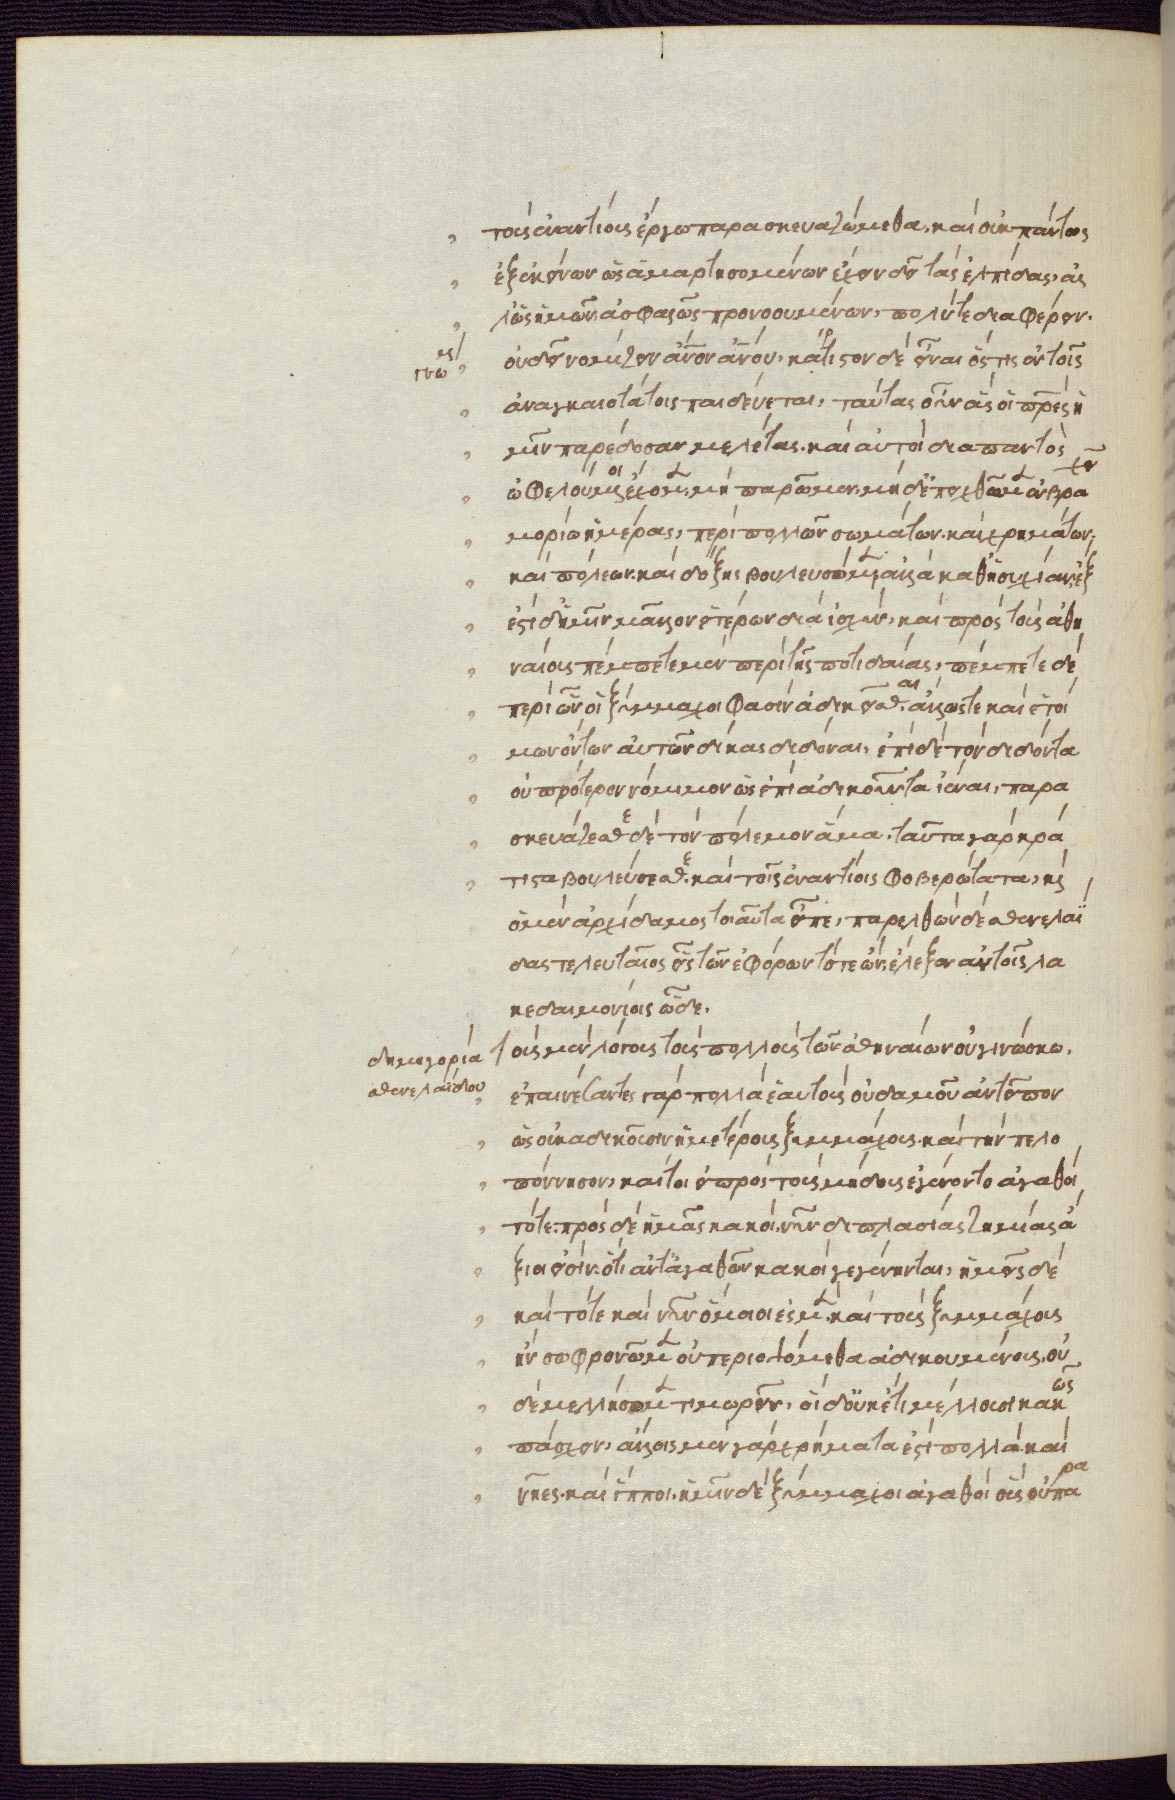 τοὺς ἐναντίους ἔργω παρασκευαζώμεθα. καὶ οὐκ πάντως
ἐξ ἐκείνων ὡς ἁμαρτησομένων ἔχειν δεῖ τὰς ἐλπίδας, ἀλ
λ' ὡς ἡμῶν ἀσφαλῶς προνοουμένων, πολύτε διαφέρειν.
οὐ δεῖ νομίζειν ἄνον ἀνου. κράτιστον δὲ εἶναι ὅστις ἐν τοῖς
ἀναγκαιοτάτοις παιδεύεται, ταύτας οὖν ἃς οἱ πρες ἡ
μῖν παρέδοσαν μελέτας. καὶ αὐτοὶ διαπαντὸς
ὠφελούμενοι ἔχομεν. μὴ παρῶμεν. μὴ δὲ ἐπειχθῶμεν ἐν βραχεῖ
μορίω ἡμέρας, περὶ πολλῶν σωμάτων. καὶ χρημάτων.
καὶ πόλεων. καὶ δόξης βουλεύσωμεν, ἀλλὰ καθ' ἡσυχίαν. ἔξ
εστι δ' ἡμῖν μᾶλλον ἑτέρων διὰ ἰσχύν, καὶ πρὸς τοὺς ἀθη
ναίους πέμπετε μὲν περὶ τῆς ποτιδαίας, πέμπετε δὲ
περὶ ὧν οἱ ξύμμαχοι φασὶν ἀδικεῖσθαι. ἄλλωςτε καὶ ἑτοί
μων ὄντων αὐτῶν δίκας διδόναι, ἐπὶ δὲ τὸν διδόντα
οὐ πρότερον νόμιμον ὡς ἐπ' ἀδικοῦντα ἰέναι, παρα
σκευάζεσθε δὲ τὸν πόλεμον ἅμα. ταῦτα γὰρ κρά
τιστα βουλεύσεσθε. καὶ τοῖς ἐναντίοις φοβερώτατα, καὶ
ὁ μὲν ἀρχίδαμος τοιαῦτα εἶπε, παρελθὼν δὲ σθενελαΐ
δας τελευταῖος εἷς τῶν ἐφόρων τότε ὤν. ἔλεξεν ἐν τοῖς λα
κεδαιμονίοις ὧδε.
δημηγορία
σθενελαΐδου
τοὺς μὲν λόγους τοὺς πολλοὺς τῶν ἀθηναίων οὐ γινώσκω.
ἐπαινέσαντες γὰρ πολλὰ ἑαυτοὺς οὐδαμοῦ ἀντεῖπον
ὡς οὐκ ἀδικοῦσιν ἡμετέρους ξυμμάχους. καὶ τὴν πελο
πόννησον, καίτοι εἰ πρὸς τοὺς μήδους ἐγένοντο ἀγαθοὶ
τότε. πρὸς δὲ ἡμᾶς κακοὶ. νῦν διπλασίας ζημίας ἄ
ξιοι εἰσίν. ὅτι ἀντ' ἀγαθῶν κακοὶ γεγένηνται, ἡμεῖς δὲ
καὶ τότε καὶ νῦν ὅμοιοι ἐσμέν. καὶ τοὺς ξυμμάχους
ἢν σωφρονῶμεν οὐ περιοψόμεθα ἀδικουμένους. οὐ
δὲ μελλήσομεν τιμωρεῖν, οἱ δ' οὐκέτι μέλλουσι κακῶς
πάσχειν, ἄλλοις μὲν γὰρ χρήματα ἐστὶ πολλὰ. καὶ
νῆες. καὶ ἵπποι. ἡμῖν δὲ ξύμμαχοι ἀγαθοὶ οὓς οὐ παρα